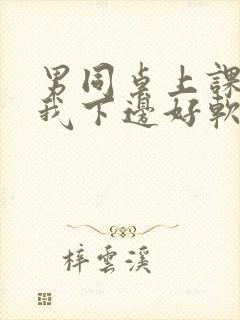 男同桌上課
我下邊好軟
梓雲溪